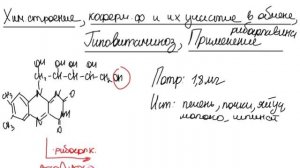 Хим строение, коферм ф и их участие в обмене
рибофлавина
Гиповитаминоз, Применение
OH OH OH
CH2-CH-CH-CH-CH2 OH
Потр: 1,8 мг
Ист: печень, почки, яйца,
молоко шпинат
CH3
CH3
N
N
O
NH
N
O